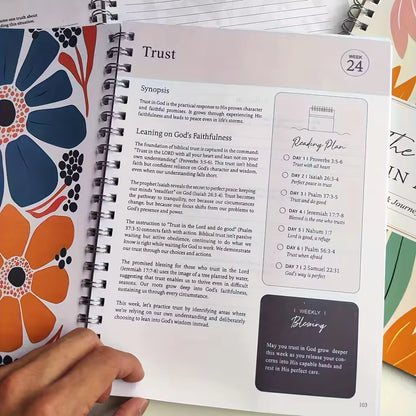 some one truth about
rding this situation.
Trust
WEEK
24
Synopsis
Trust in God is the practical response to His proven character
and faithful promises. It grows through experiencing His
faithfulness and leads to peace even in life's storms.
Leaning on God's Faithfulness
The foundation of biblical trust is captured in the command:
"Trust in the LORD with all your heart and lean not on your
own understanding" (Proverbs 3:5-6). This trust isn't blind
faith but confident reliance on God's character and wisdom,
even when our understanding falls short.
The prophet Isaiah reveals the secret to perfect peace: keeping
our minds "steadfast" on God (Isaiah 26:3-4). Trust becomes
the pathway to tranquility, not because our circumstances
change, but because our focus shifts from our problems to
God's presence and power.
The instruction to "Trust in the Lord and do good" (Psalm
37:3-5) connects faith with action. Biblical trust isn't passive
waiting but active obedience, continuing to do what we
know is right while waiting for God to work. We demonstrate
our trust through our choices and actions.
The promised blessing for those who trust in the Lord
(Jeremiah 17:7-8) uses the image of a tree planted by water,
suggesting that trust enables us to thrive even in difficult
seasons. Our roots grow deep into God's faithfulness,
sustaining us through every circumstance.
This week, let's practice trust by identifying areas where
we're relying on our own understanding and deliberately
choosing to lean into God's wisdom instead.
Reading Plan
DAY 1 | Proverbs 3:5-6
Trust with all heart
DAY 2 | Isaiah 26:3-4
Perfect peace in trust
DAY 3 | Psalm 37:3-5
Trust and do good
DAY 4 | Jeremiah 17:7-8
Blessed is the one who trusts
DAY 5 | Nahum 1:7
Lord is good, a refuge
DAY 6 | Psalm 56:3-4
Trust when afraid
DAY 7 | 2 Samuel 22:31
God's way is perfect
| WEEKLY |
Blessing
May you trust in God grow deeper
this week as you release your con-
cerns into His capable hands and
rest in His perfect care.
103
The
IN
& Journal